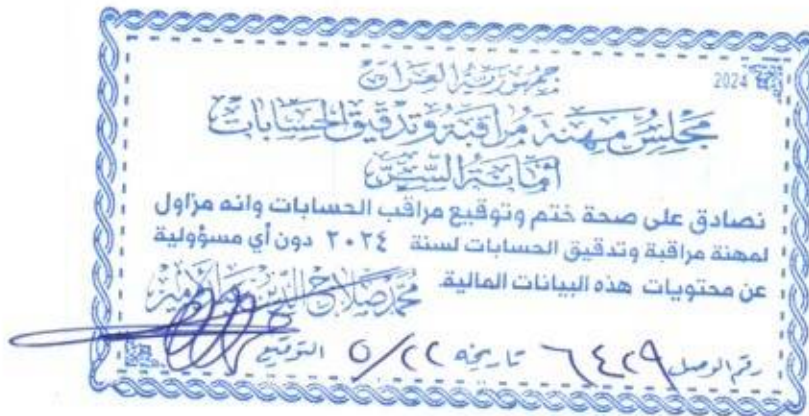 2024
جمهورية العراق
مجلس مهنة مراقبة وتدقيق الحسابات
أمانة السر
نصادق على صحة ختم وتوقيع مراقب الحسابات وانه مزاول
لمهنة مراقبة وتدقيق الحسابات لسنة ٢٠٢٤ دون أي مسؤولية
عن محتويات هذه البيانات المالية
محمد صلاح الدين عبد الأمير
رقم الوصل ٦٤٢٩ تاريخه ٥/٢٢ التوقيع